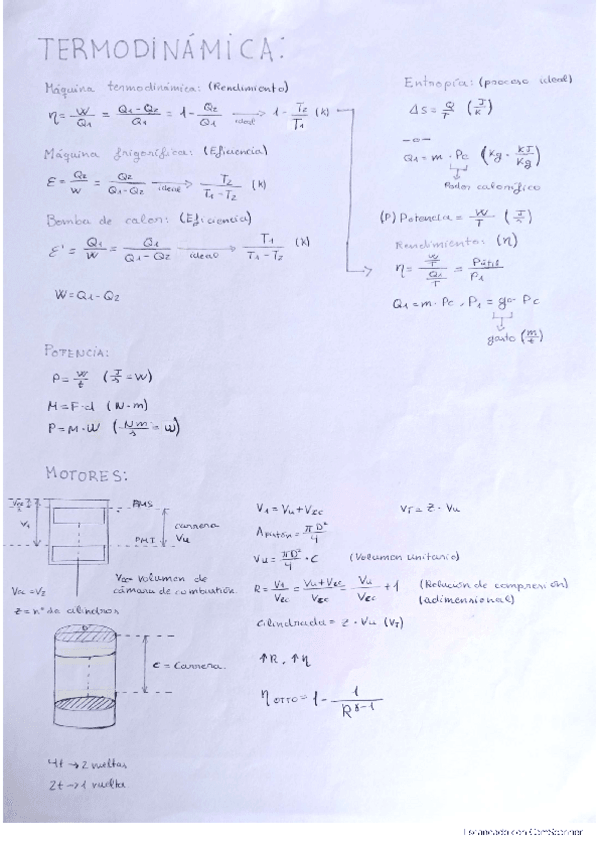 TERMODINÁMICA:
Máquina termodinámica: (Rendimiento)
η = W/Q1 = Q1-Q2/Q1 = 1 - Q2/Q1 ideal→ 1 - T2/T1 (K)
Máquina frigorífica: (Eficiencia)
ε = Q2/W = Q2/Q1-Q2 ideal→ T2/T1-T2 (K)
Bomba de calor: (Eficiencia)
ε' = Q1/W = Q1/Q1-Q2 ideal→ T1/T1-T2 (K)
W = Q1-Q2
Entropía: (proceso ideal)
ΔS = Q/T (J/K)
Q1 = m · Pc (Kg · KJ/Kg)
Poder calorífico
(P) Potencia = W/T (J/s)
Rendimiento: (η)
η = W/T / Q1/T = Pútil/P1
Q1 = m · Pc, P1 = ga · Pc
gasto (m/t)
POTENCIA:
P = W/t (J/s = W)
M = F·d (N·m)
P = M·W (Nm/s = W)
MOTORES:
PMS
V1
carrera
Vu
PMI
Vcc = V2
Vcc = volumen de
cámara de combustión.
z = nº de cilindros
D
C = Carrera.
4t → 2 vueltas
2t → 1 vuelta
V1 = Vu + Vcc
VT = z · Vu
A pistón = πD²/4
Vu = πD²/4 · C (Volumen unitario)
R = V1/Vcc = Vu+Vcc/Vcc = Vu/Vcc + 1 (Relación de compresión)
(adimensional)
Cilindrada = z · Vu (VT)
↑R, ↑η
η OTTO = 1 - 1/R^γ-1
Escaneado con CamScanner